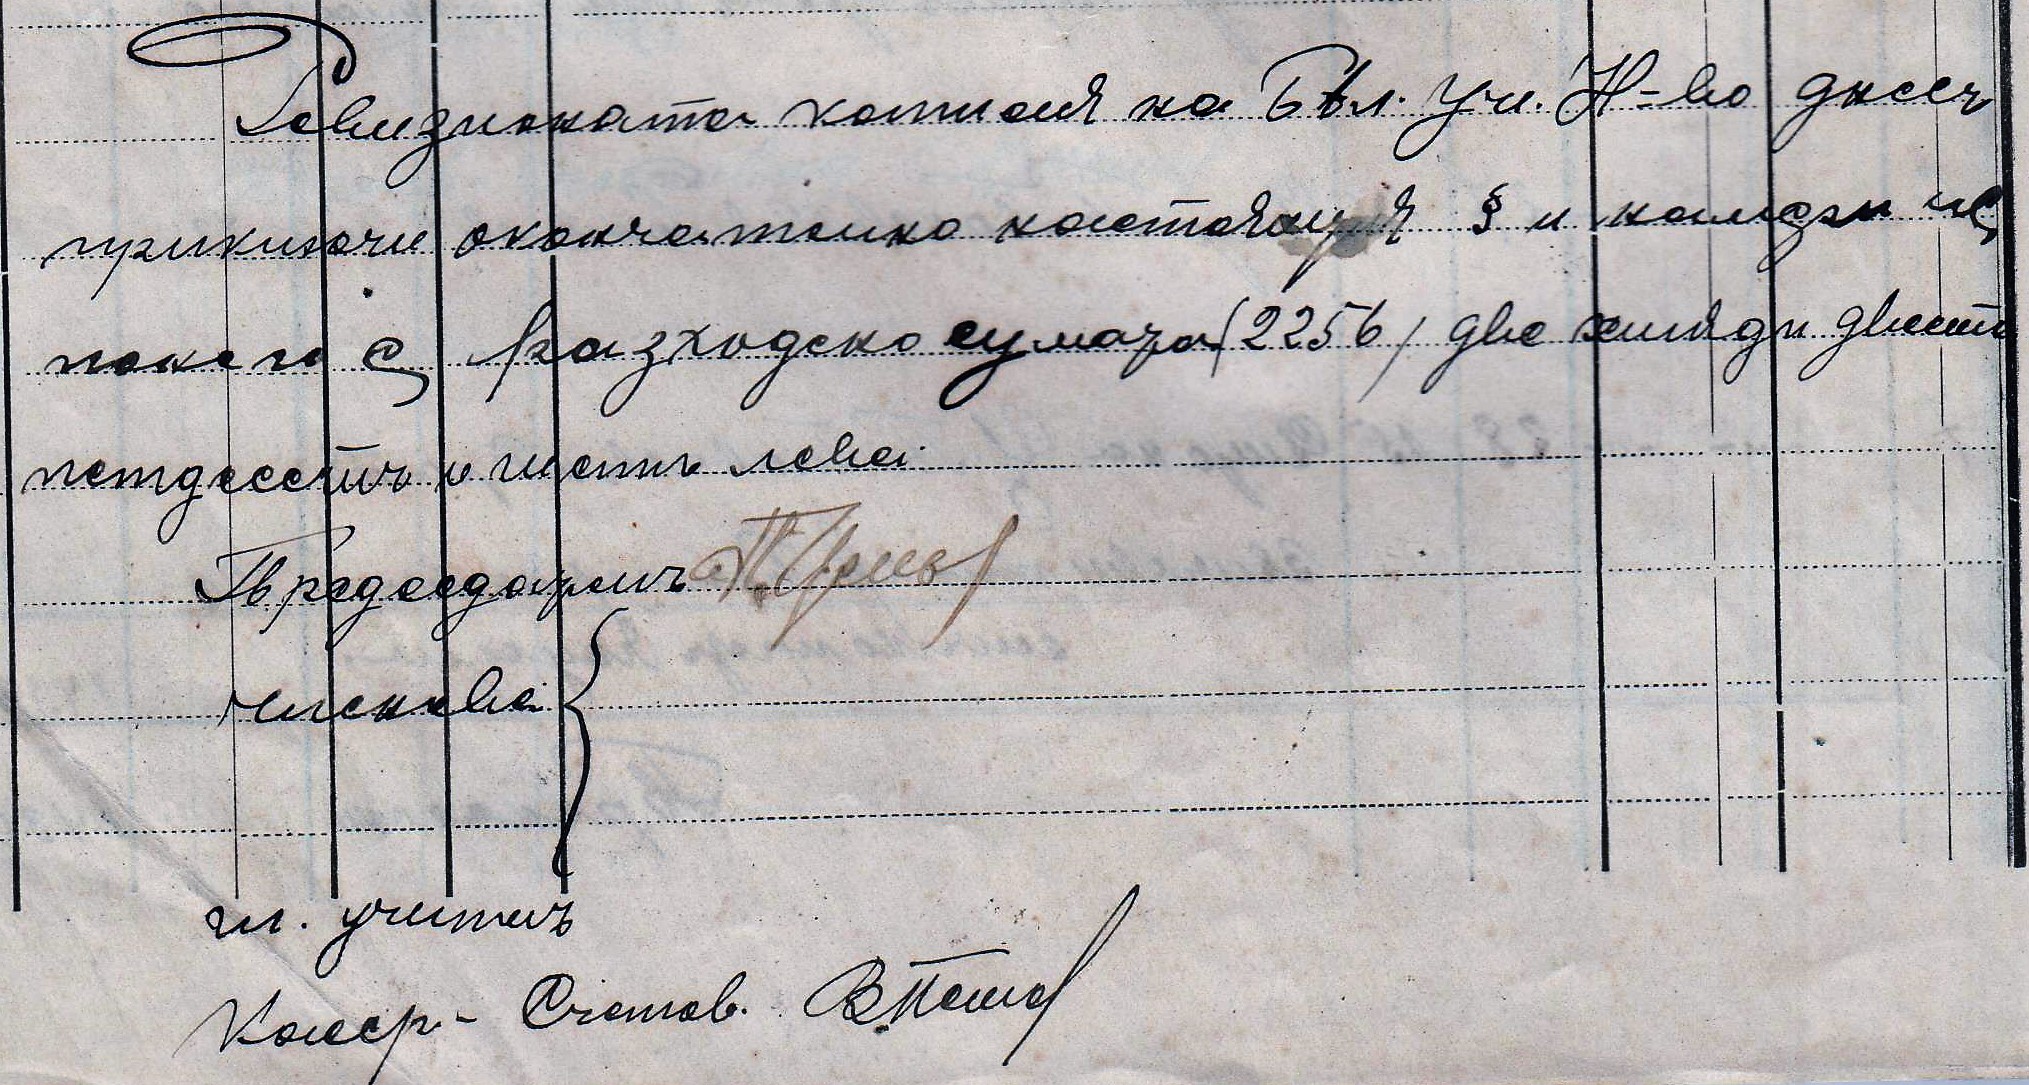 Ревизионата комисия на Бѣл. Уч. Н-во днесъ
приключи окончателно настоящия § и намери че
понего е разходвано сумата (2256) две хиляди двесте
петдесеть и шесть лева.
Председатель
членове
гл. учитель
Касиер-Счетов.